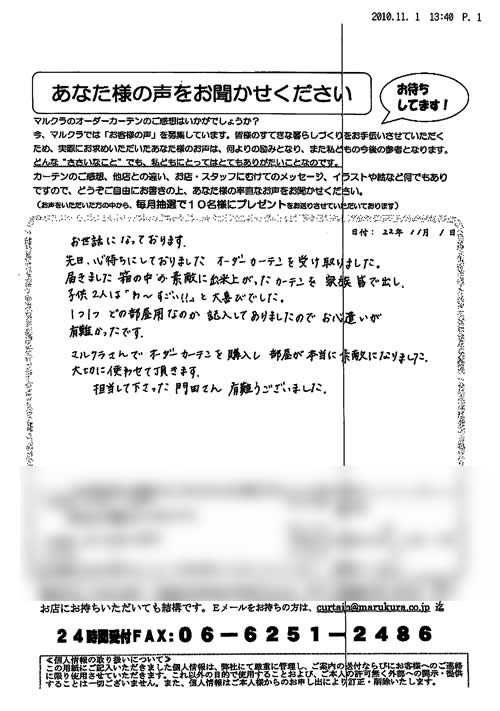 2010.11. 1 13:40 P. 1
あなた様の声をお聞かせください
お待ち
してます!
マルクラのオーダーカーテンのご感想はいかがでしょうか?
今、マルクラでは「お客様の声」を募集しています。皆様のすてきな暮らしづくりをお手伝いさせていただく
ため、実際にお求めいただいたあなた様のお声は、何よりの励みとなり、また私どもの今後の参考となります。
どんな“ささいなこと”でも、私どもにとってはとてもありがたいことなのです。
カーテンのご感想、他店との違い、お店・スタッフにむけてのメッセージ、イラストや絵など何でもあり
ですので、どうぞご自由にお書きの上、あなた様の率直なお声をお聞かせください。
(お声をいただいた方の中から、毎月抽選で10名様にプレゼントをお送りさせていただいております)
日付: 22年 11月 1日
お世話になっております.
先日、心待ちにしておりました オーダーカーテンを受け取りました。
届きました 箱の中の 素敵に出来上がったカーテンを 家族皆で出し、
子供2人は「わ〜すごい!!」と大喜びでした。
1つ1つ どの部屋用なのか 記入してありましたので お心遣いが
有難かったです.
マルクラさんで オーダーカーテンを購入し 部屋が本当に素敵になりました.
大切に使わせて頂きます.
担当して下さった 門田さん 有難うございました.
お店にお持ちいただいても結構です。Eメールをお持ちの方は、curtain@marukura.co.jp 迄
24時間受付FAX:06-6251-2486
≪個人情報の取り扱いについて≫
この用紙にご記入いただきました個人情報は、弊社にて厳重に管理し、ご案内の送付ならびにお客様へのご連絡
に限り使用させていただきます。これ以外の目的で使用することおよび、ご本人の許可無く外部への開示・提供
することは一切ございません。また、個人情報はご本人様からのお申し出により訂正・削除いたします。